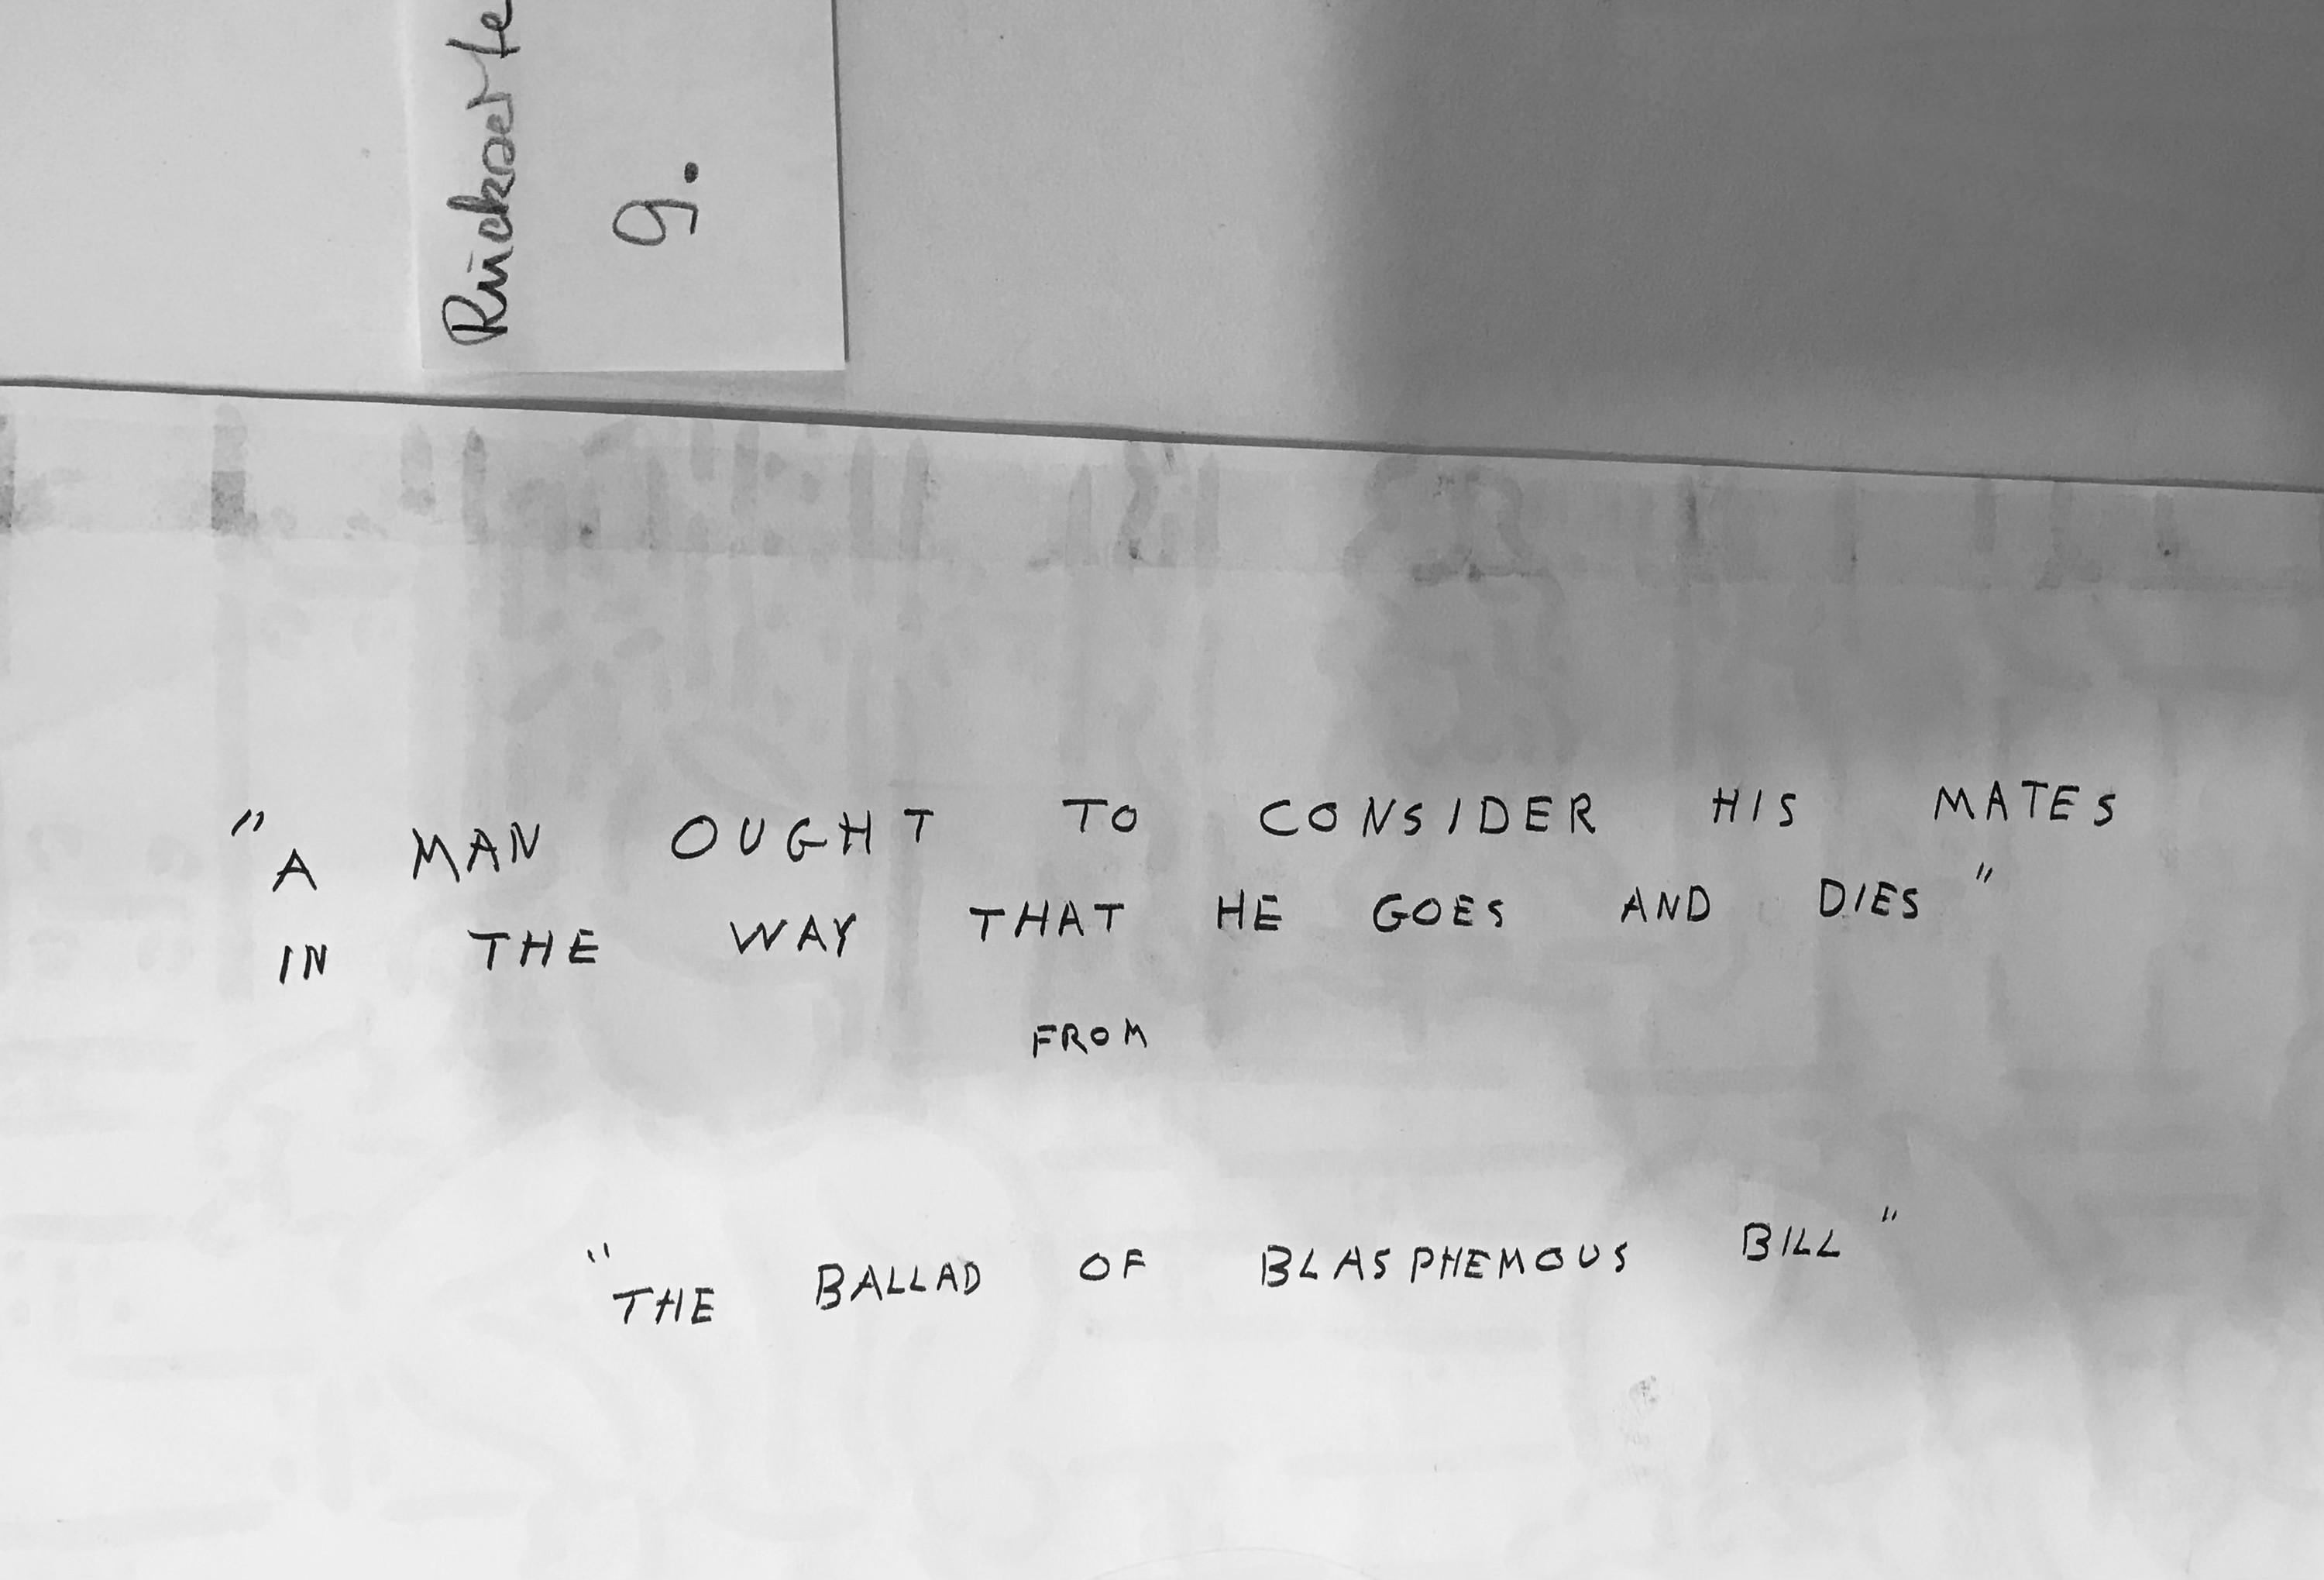 Rückseite
9.
"A MAN OUGHT TO CONSIDER HIS MATES
IN THE WAY THAT HE GOES AND DIES"
FROM
"THE BALLAD OF BLASPHEMOUS BILL"